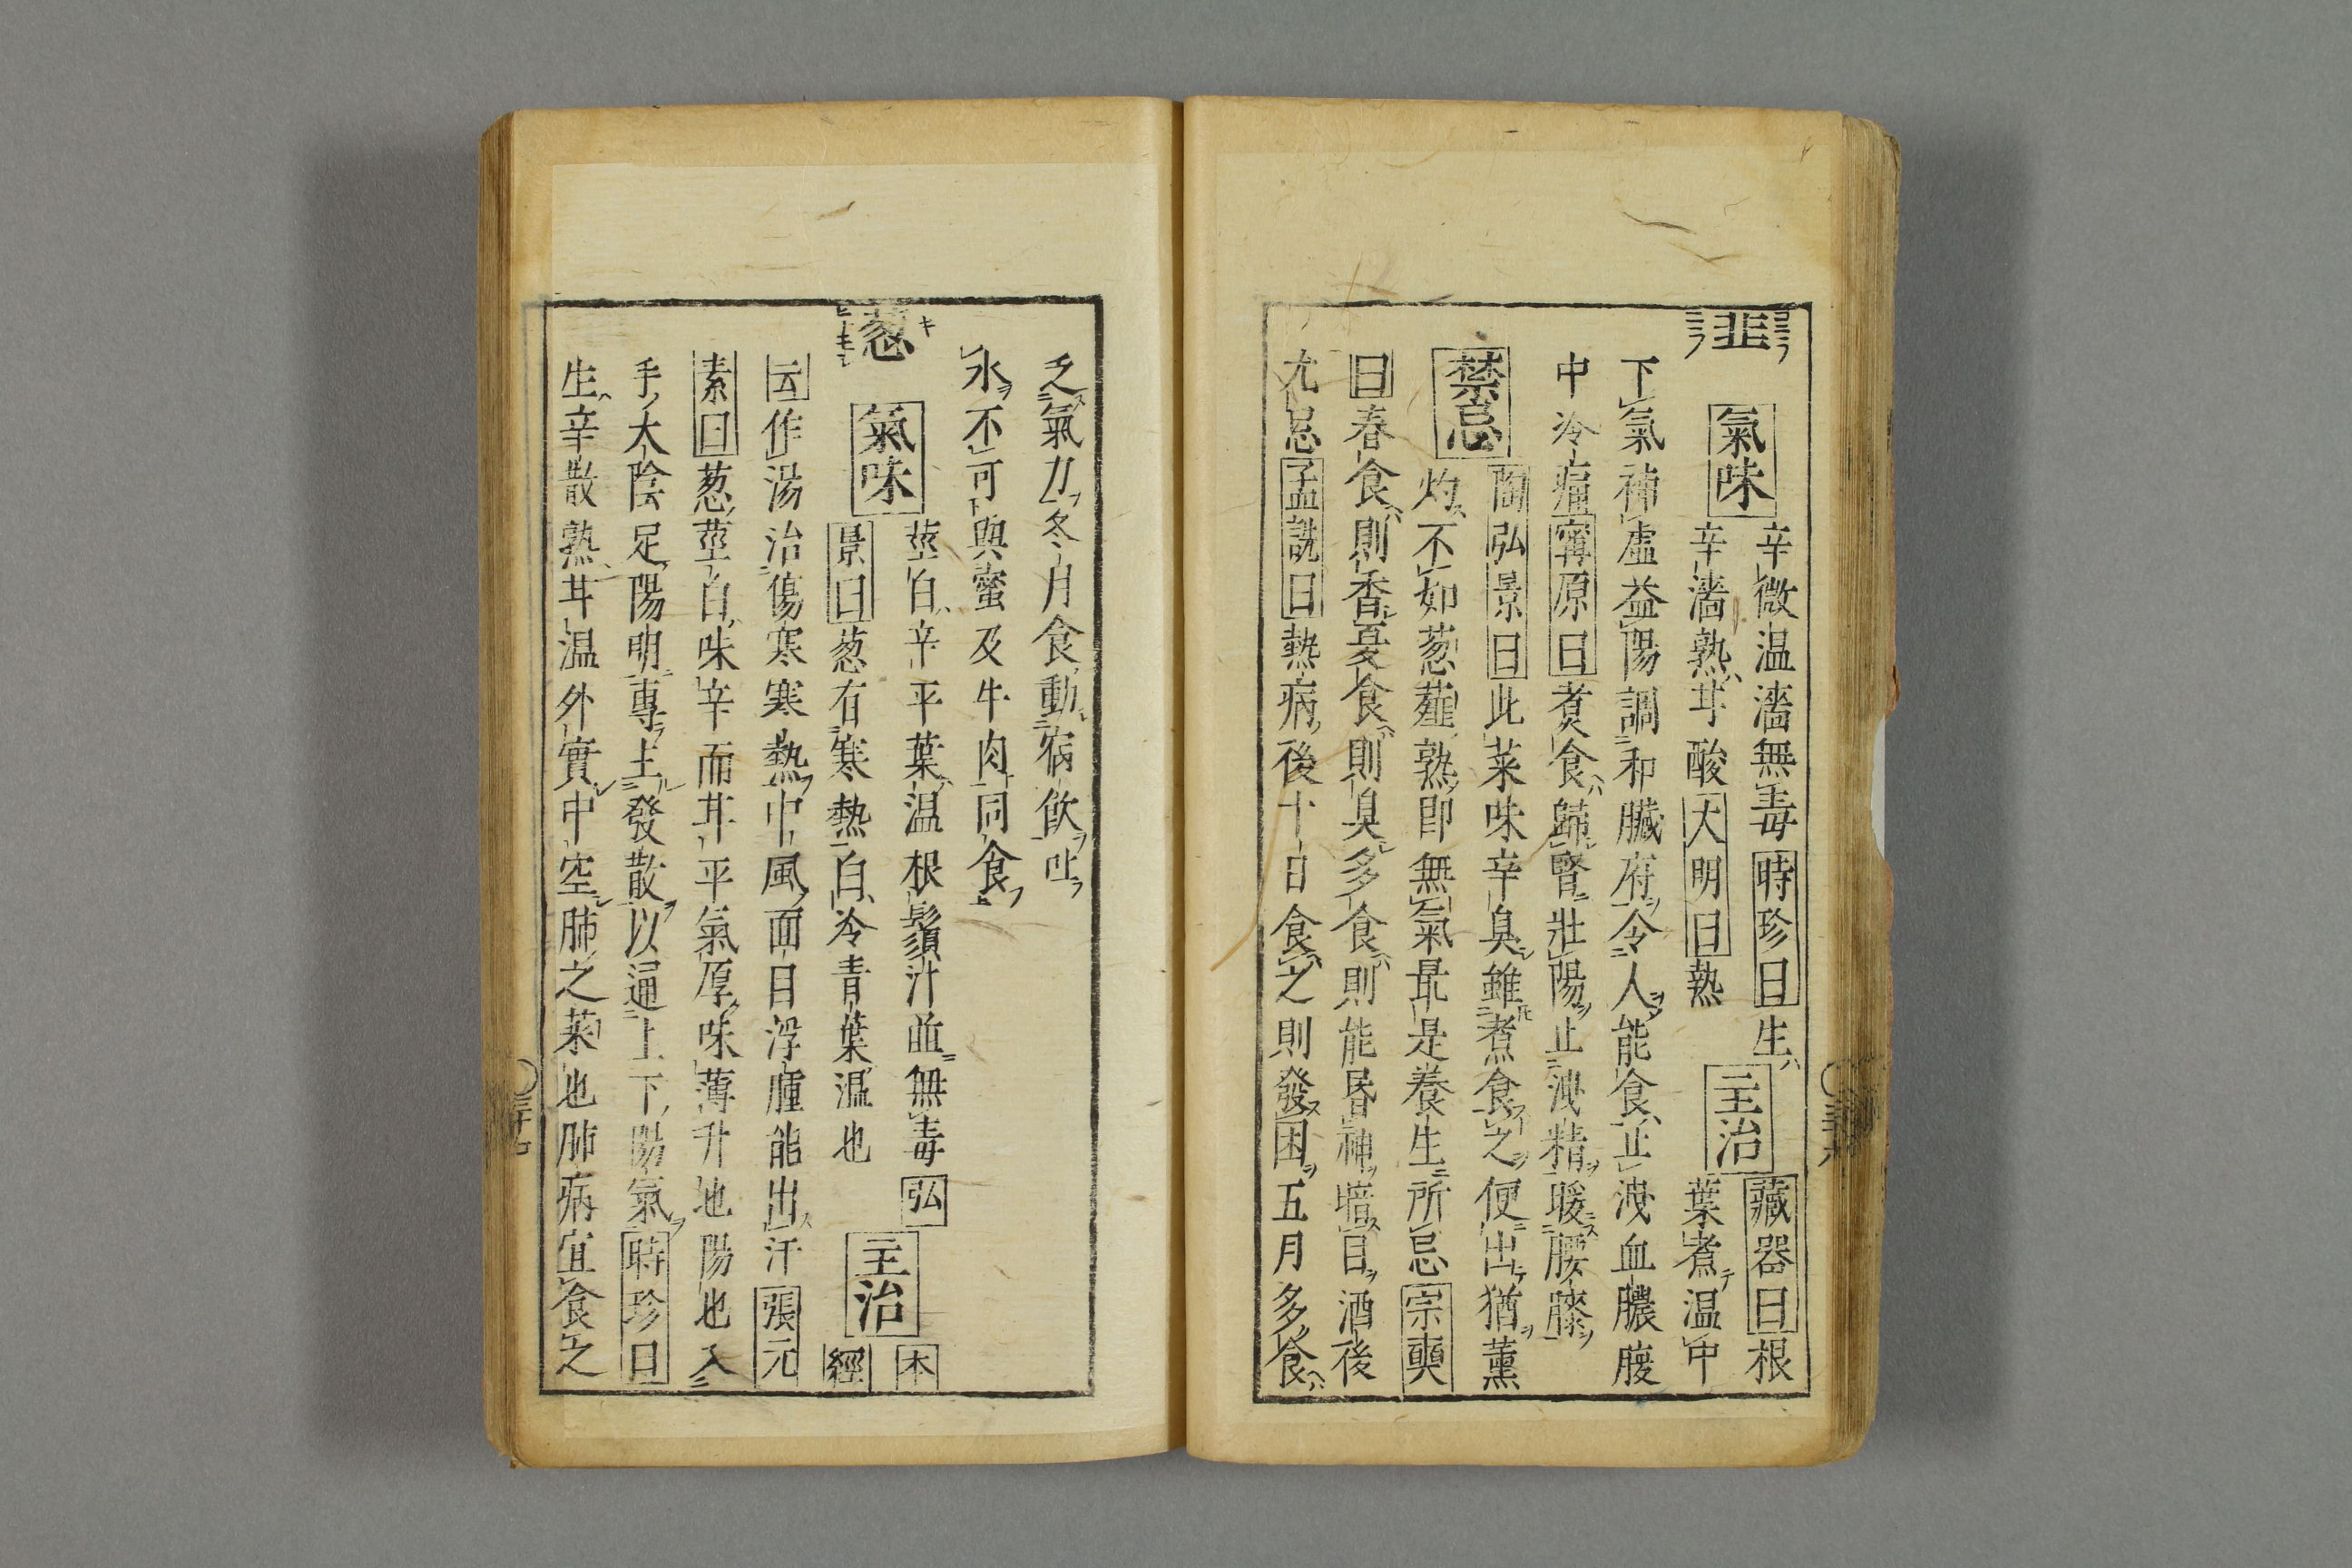 韭
氣味
辛微温濇無毒時珍曰生
辛濇熟甘酸大明曰熱
主治
藏器曰根
葉煮温中
下氣補虛益陽調和臟府令人能食止洩血膿腹
中冷痛寗原曰煮食歸腎壯陽止洩精暖腰膝
禁忌
陶弘景曰此菜味辛臭雖煮食之便出猶薰
灼不如葱薤熟即無氣最是養生所忌宗奭
曰春食則香夏食則臭多食則能昬神暗目酒後
尤忌孟詵曰熱病後十日食之則發困五月多食
三十六
乏氣力冬月食動宿飲吐
水不可與蜜及牛肉同食
葱
氣味
莖白辛平葉温根鬚汁並無毒弘
景曰葱有寒熱白冷青葉温也
主治
本
經
云作湯治傷寒寒熱中風面目浮腫能出汗張元
素曰葱莖白味辛而甘平氣厚味薄升也陽也入
手太陰足陽明專主發散以通上下陽氣時珍曰
生辛散熟甘温外實中空肺之菜也肺病宜食之
三十七